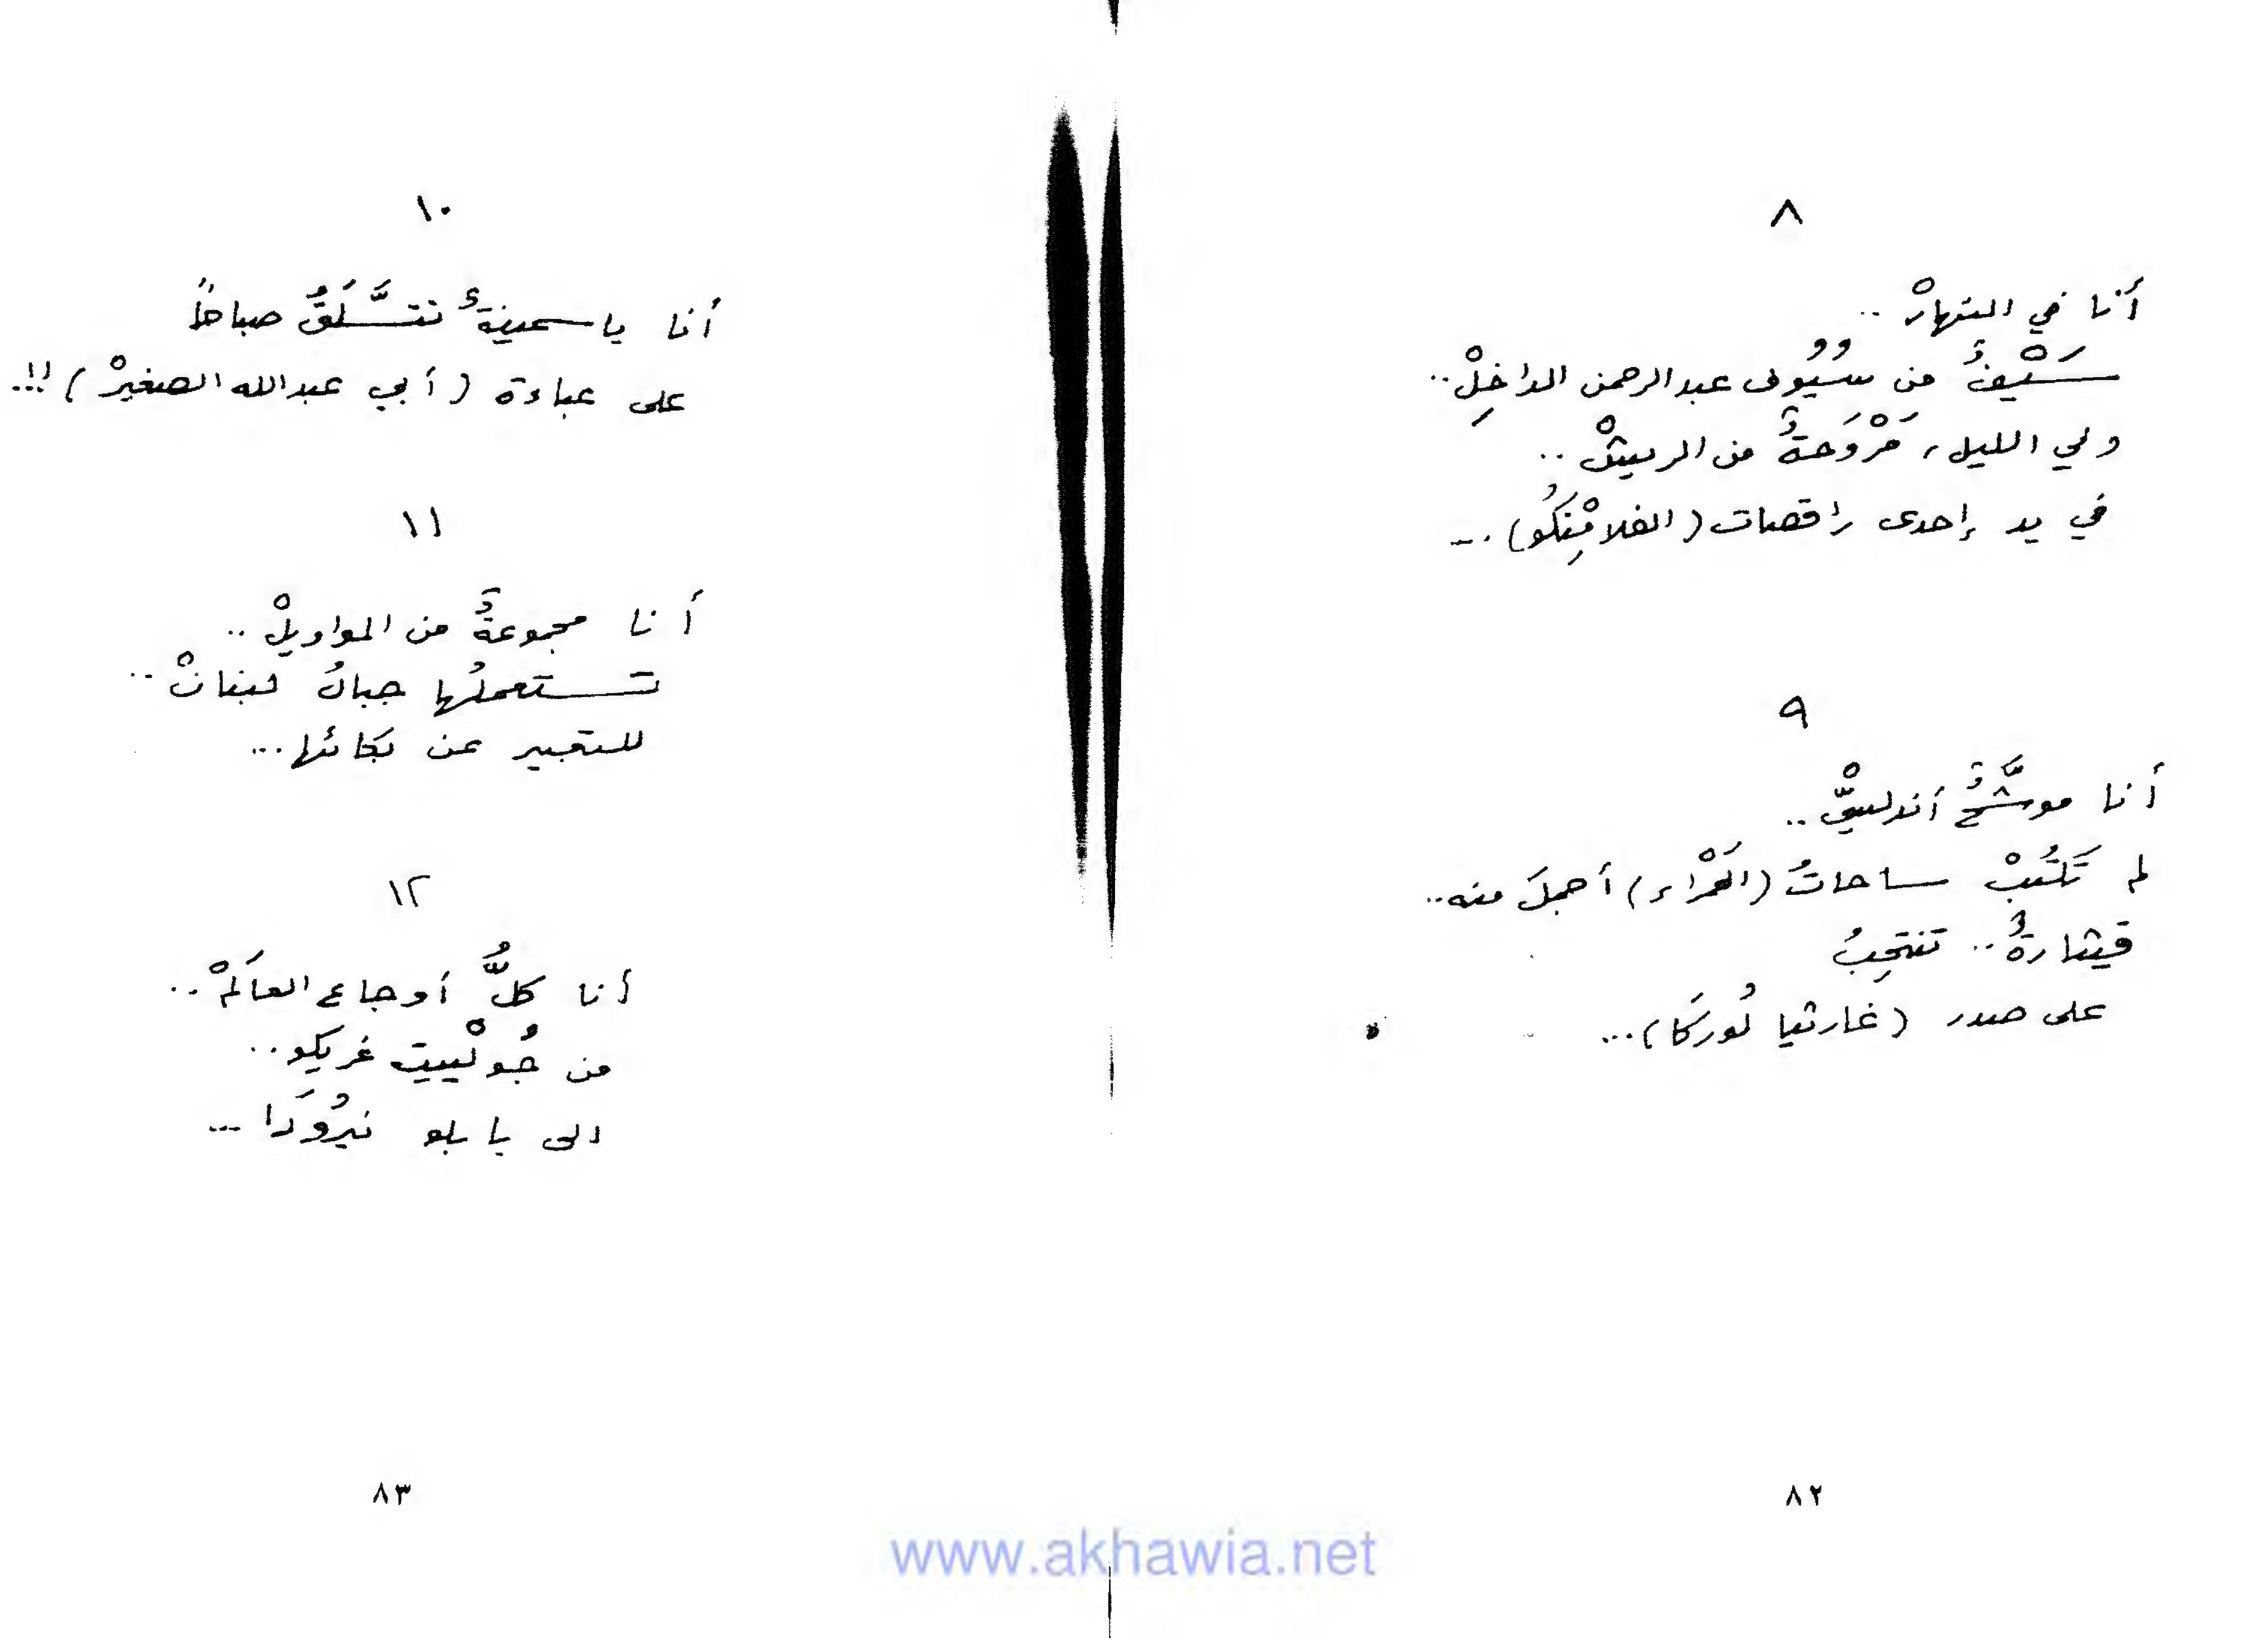 ٨
أنا في النهارْ ..
سَيْفٌ من سُيُوف عبدالرحمن الداخِلْ ..
وفي الليل، مَرْوَحةٌ من الريشْ ..
في يد إحدى راقصات (الفلامِنْكُو) ...
٩
أنا موشَّحٌ أندلسيّْ ..
لم تَكتُبْ ساحاتُ (الحَمْراء) أجملَ منه ..
قيثارةٌ .. تنتحِبُ
على صدر (غارثيا لُورْكَا) ...
٨٢
١٠
أنا ياسمينةٌ تتسَّلَقُ صباحاً
على عباءة (أبي عبدالله الصغيرْ) !!..
١١
أنا مجموعةٌ من المواويلْ ..
تستعملُها جبالُ لبنانْ ..
للتعبير عن بُكائها ...
١٢
أنا كلُّ أوجاع العالَمْ ..
من جُولْييت غريكو ..
الى بابلو نيرُودَا ...
٨٣
www.akhawia.net